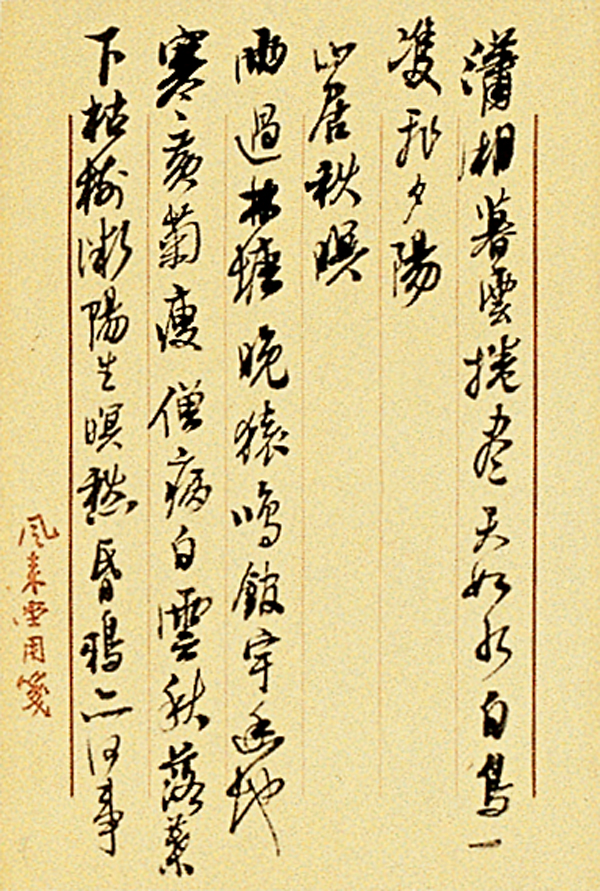 瀟湘暮雲捲盡天如水白鳥一
雙飛夕陽
山居秋暝
雨過林塘晚猿鳴館宇幽地
寒黃菊瘦僧病白雲秋落葉
下枯樹微陽生暝愁昏鴉亦何事
風來用箋